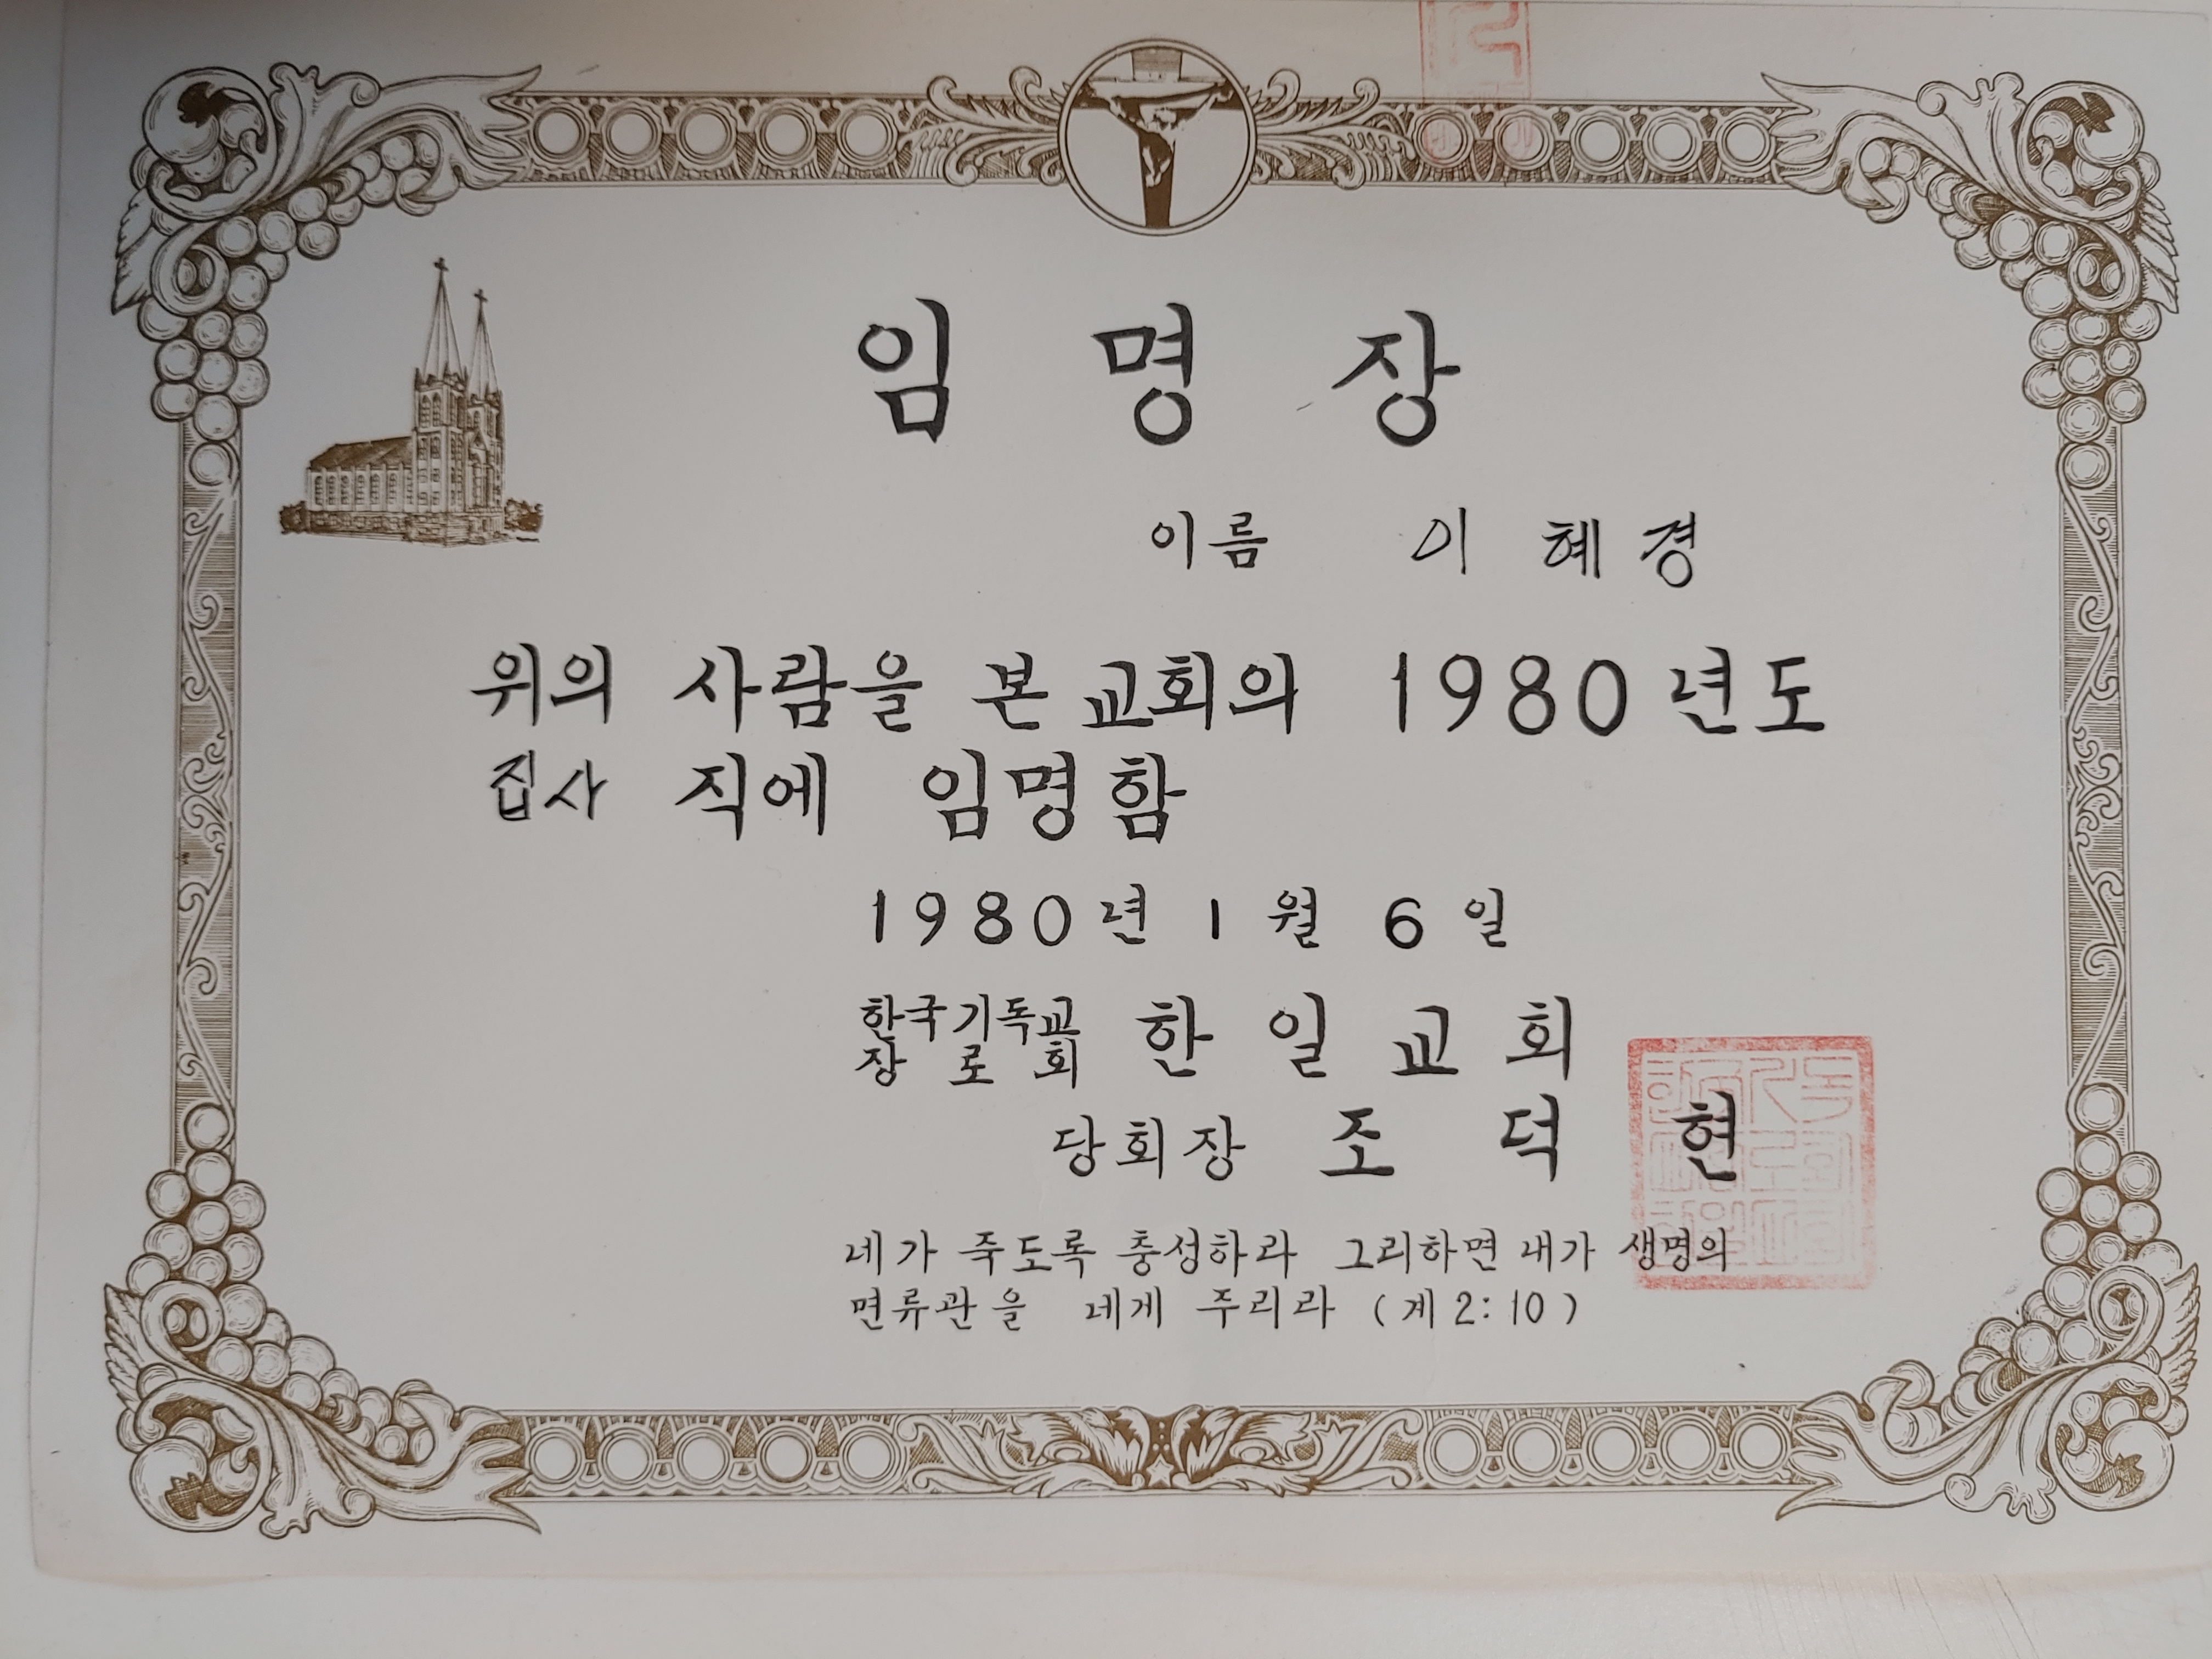 임 명 장
이름 이 혜 경
위의 사람을 본 교회의 1980 년도
집사 직에 임명함
1980년 1 월 6 일
한국기독교
장 로 회 한 일 교 회
당회장 조 덕 현
네가 죽도록 충성하라 그리하면 내가 생명의
면류관을 네게 주리라 (계 2:10)